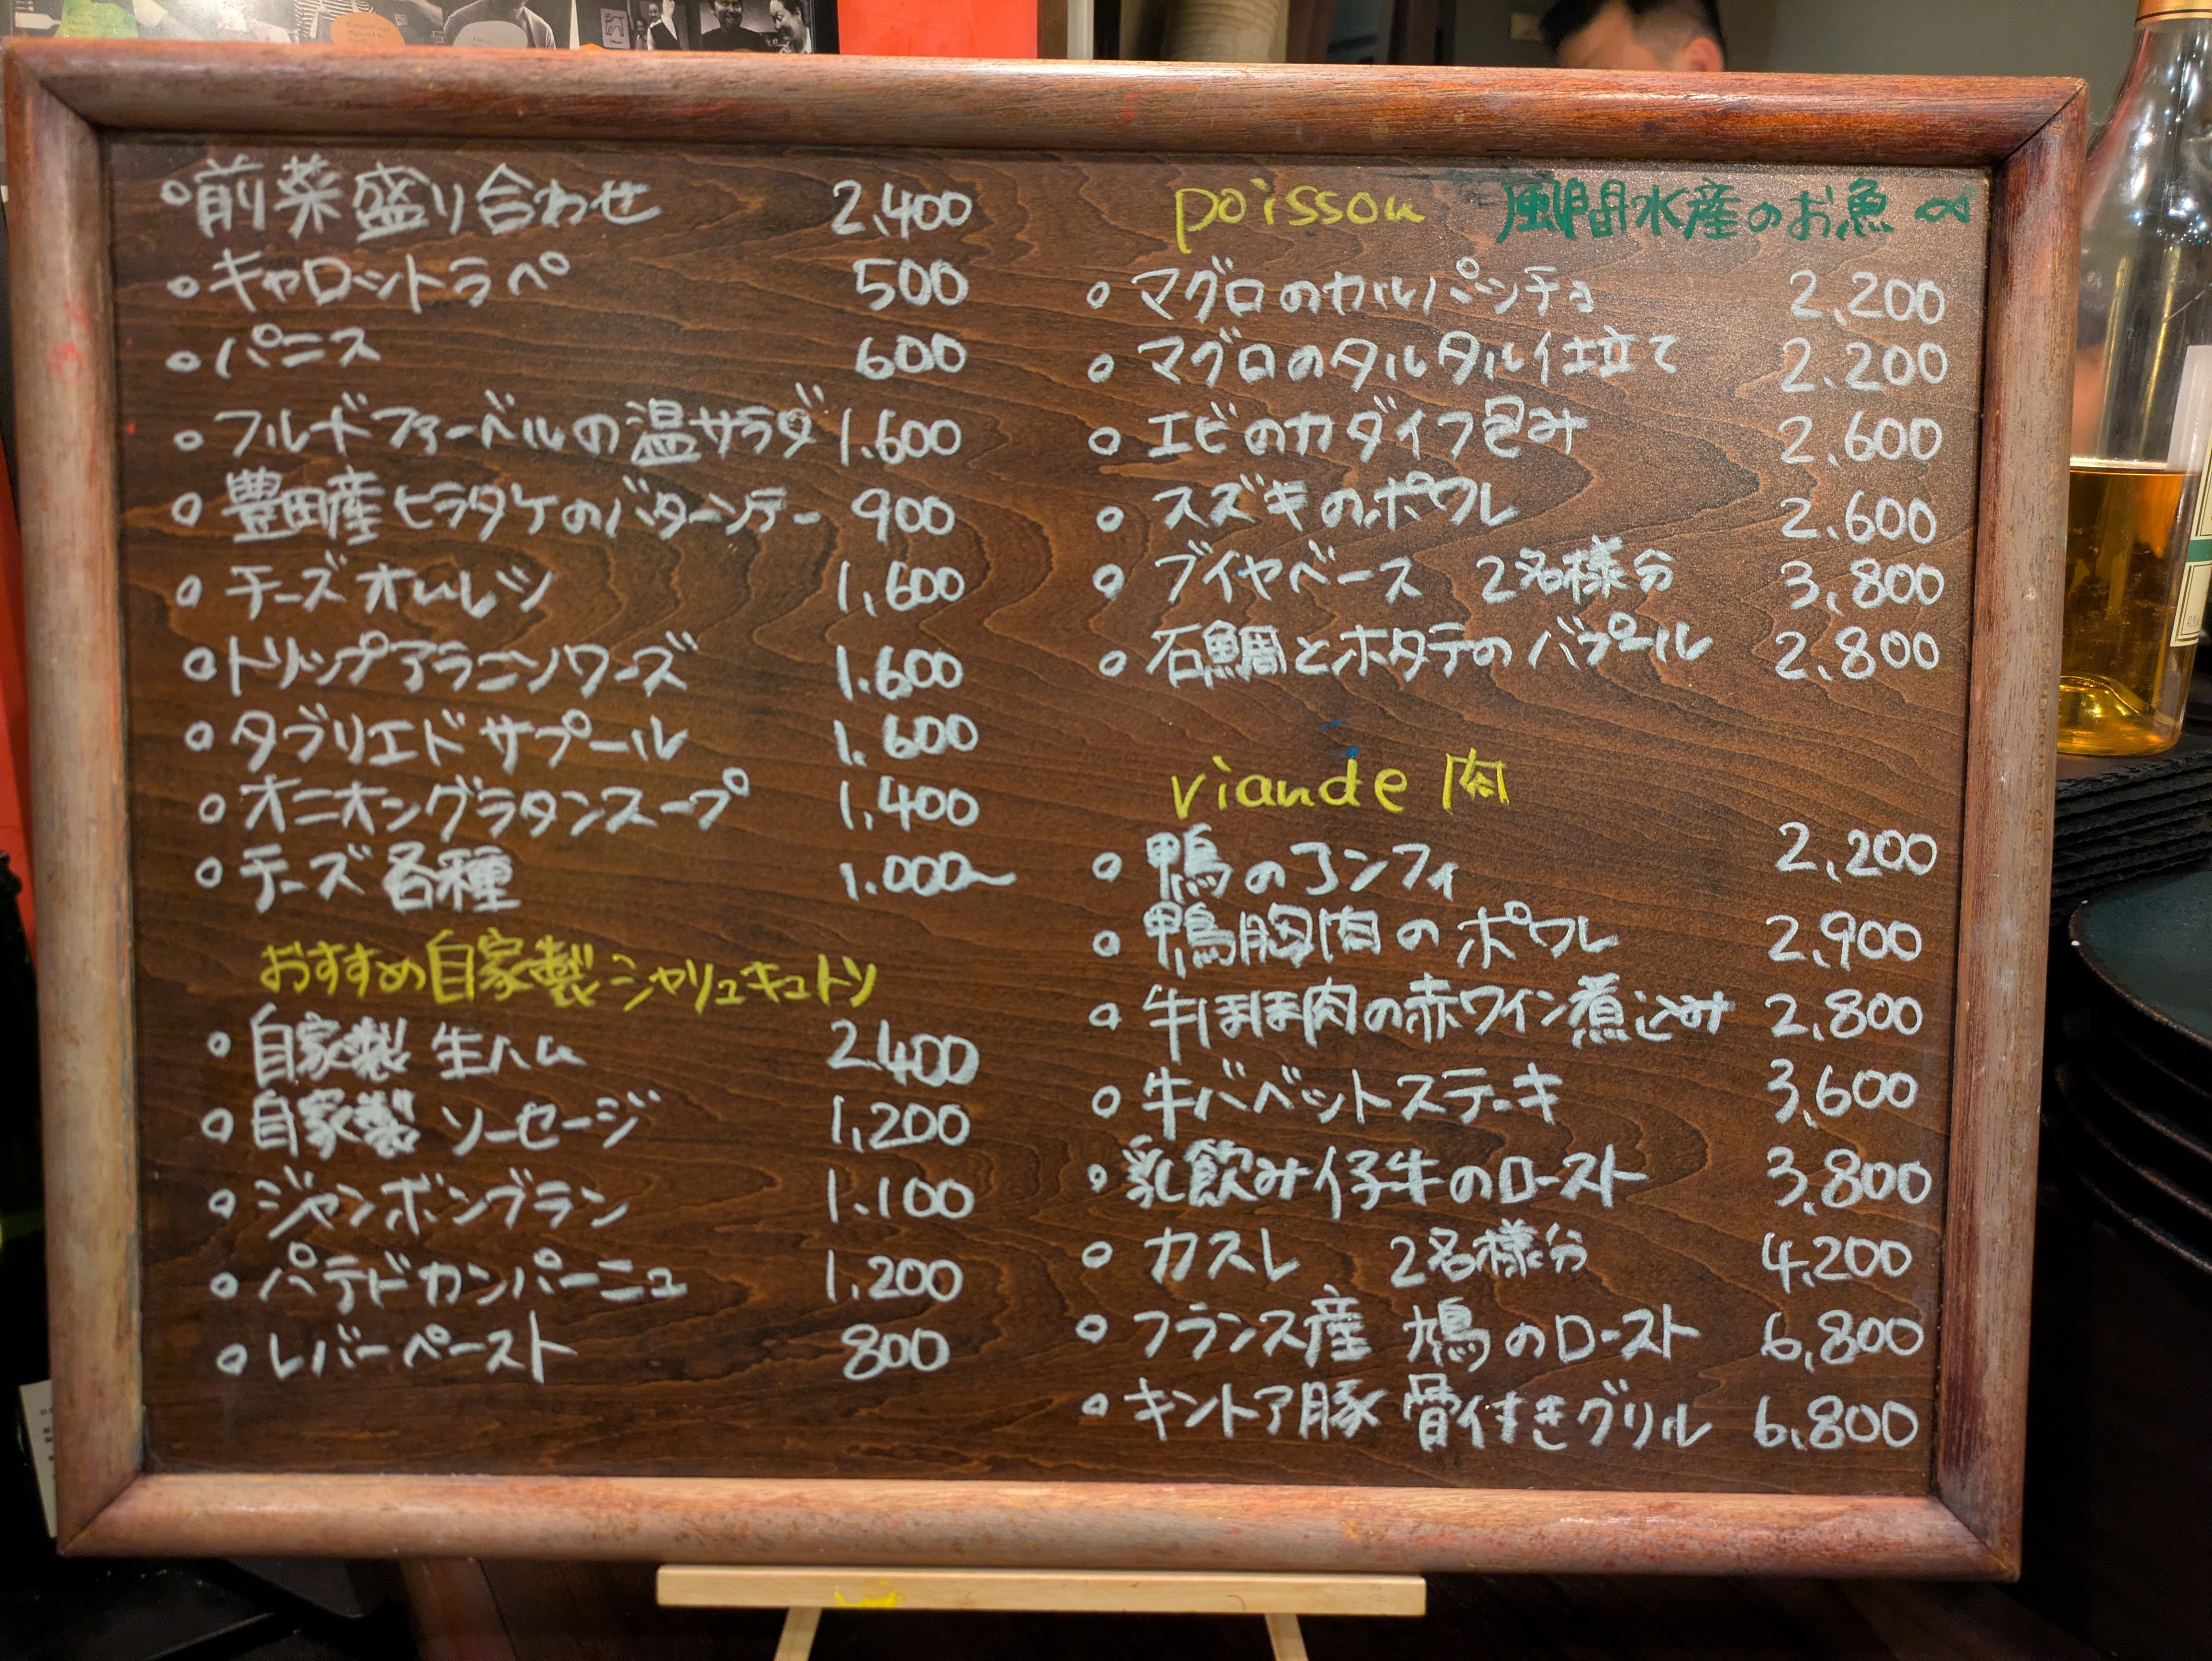 前菜盛り合わせ 2,400
キャロットラペ 500
パニス 600
フルドファーベルの温サラダ 1.600
豊田産ヒラタケのバターソテー 900
チーズオムレツ 1,600
トリップアラニソワーズ 1.600
タブリエドサプール 1.600
オニオングラタンスープ 1.400
チーズ各種 1.000~
おすすめ自家製シャリュキュトリ
自家製 生ハム 2,400
自家製 ソーセージ 1,200
ジャンボンブラン 1.100
パテドカンパーニュ 1,200
レバーペースト 800
poisson 風間水産のお魚
マグロのカルパッチョ 2,200
マグロのタルタル仕立て 2.200
エビのカダイフ包み 2,600
スズキのポワレ 2.600
ブイヤベース 2名様分 3,800
石鯛とホタテのバプール 2.800
viande 肉
鴨のコンフィ 2,200
鴨胸肉のポワレ 2,900
牛ほほ肉の赤ワイン煮込み 2,800
牛バベットステーキ 3,600
乳飲み仔牛のロースト 3,800
カスレ 2名様分 4,200
フランス産 鳩のロースト 6,800
キントア豚 骨付きグリル 6,800